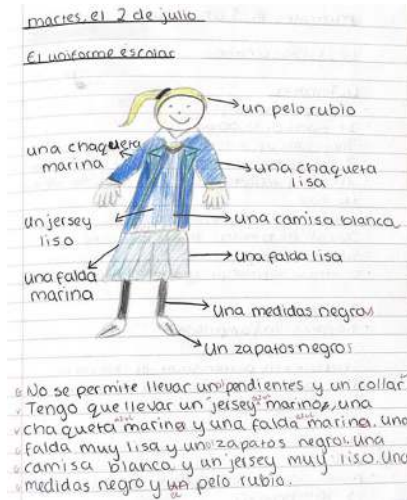 martes, el 2 de julio
El uniforme escolar
un pelo rubio
una chaqueta
marina
una chaqueta
lisa
un jersey
liso
una camisa blanca
una falda lisa
una falda
marina
Una medidas negros
Un zapatos negros
No se permite llevar un pendientes y un collar
Tengo que llevar un jersey azul marino, una
chaqueta azul marina y una falda azul marina. Una
falda muy lisa y un zapatos negros. Una
camisa blanca y un jersey muy liso. Una
medidas negro y un pelo rubio.